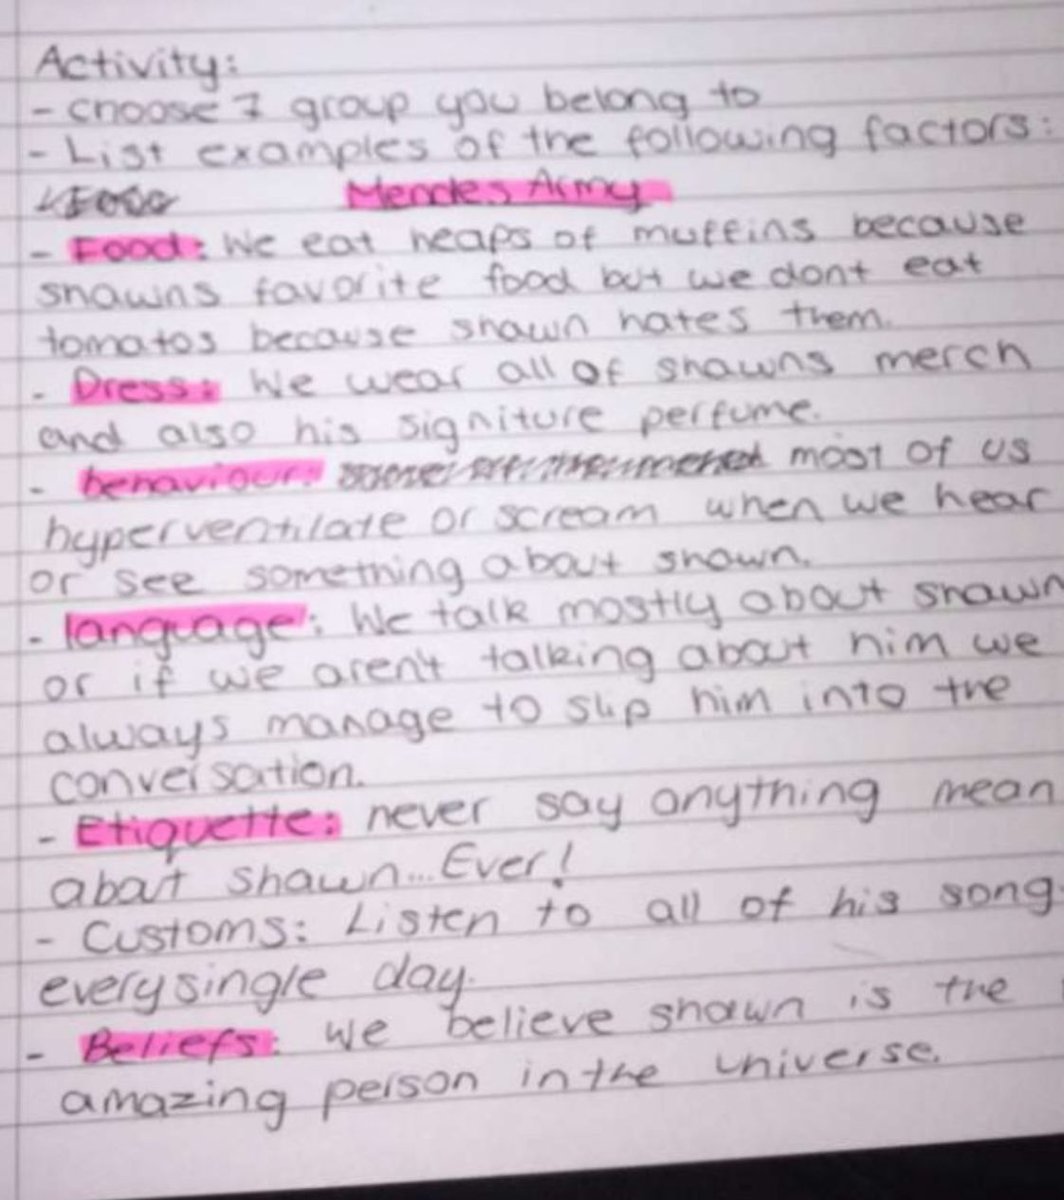 Activity:
- choose 1 group you belong to
- List examples of the following factors:
Mendes Army
- Food: We eat heaps of muffins because
shawns favorite food but we dont eat
tomatos because shawn hates them.
- Dress: We wear all of shawns merch
and also his signiture perfume.
- behaviour: most of us
hyperventilate or scream when we hear
or see something about shawn.
- language: We talk mostly about shawn
or if we aren't talking about him we
always manage to slip him into the
conversation.
- Etiquette: never say anything mean
about shawn... Ever!
- Customs: Listen to all of his song
every single day.
- Beliefs: we believe shawn is the
amazing person in the universe.